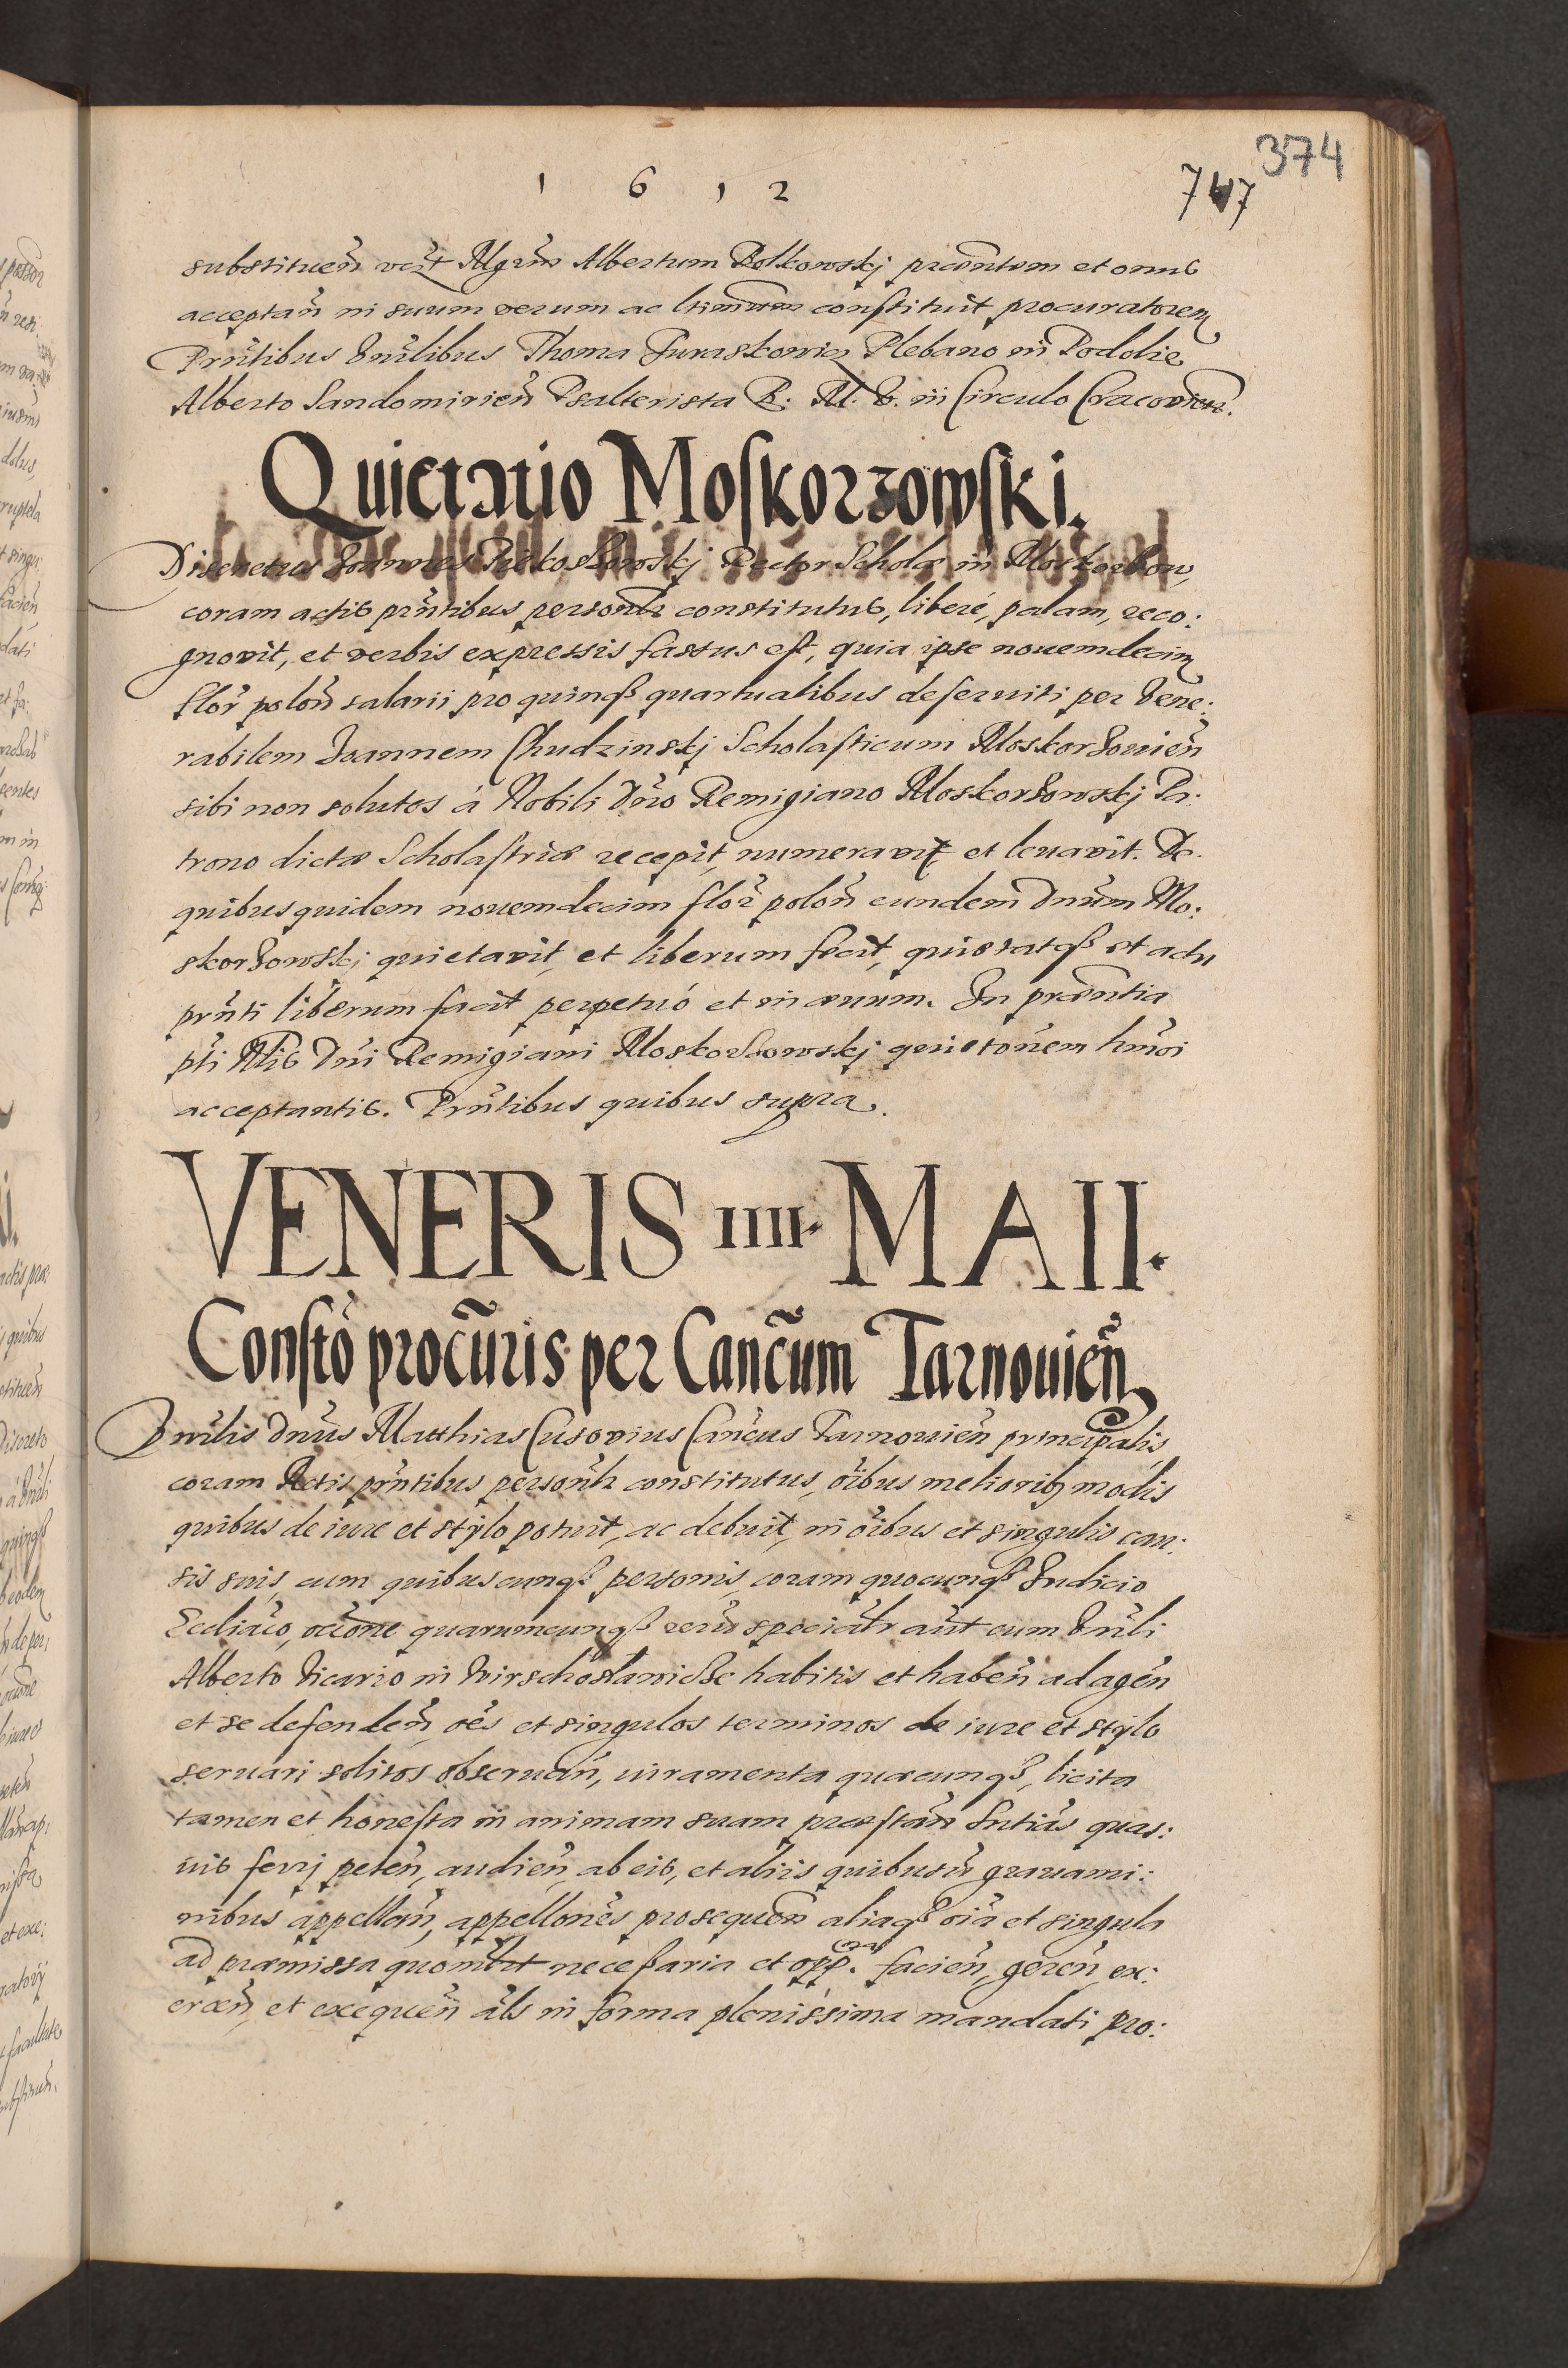 374
1 6 1 2
747
substituen̄ Mgrm̄ Albertum Rolkowskj præntem et onus
acceptan̄ in suum verum ac ltimum constituit procuratorem
Prn̄tibus Vnrlibus Thoma Juraskowicz Plebano in Podolie
Alberto Sandomirien̄ Psalterista B. M. V. in Circulo Cracovien̄.
Quietatio Moskorzowski.
Discretus Joannes Rector Scholæ in Moskorzow,
coram actis prn̄tibus personlr constitutus, liberé, palam, reco:
gnovit, et verbis expressis fassus est, quia ipse nouemdecim
flor̄ polon̄ salarii pro quinqꝫ quartualibus deseruiti per Vene:
rabilem Joannem Chudzinskj Scholasticum Moskorzouien̄
sibi non solutos á Nobili Dn̄o Remigiano Moskorzowskj Pa:
trono dictæ Scholastriæ recepit, numeravit et levavit. De
quibus quidem nouemdecim flor̄ polon̄ eundem Dnūm Mo:
skorzowskj quietavit, et liberum fecit, quietatqꝫ et actu
prn̄ti liberum facit perpetuó et in æuum. In præntia
pti Nlis Dn̄i Remigiani Moskorzowskj quieton̄em hm̄oi
acceptantis. Prn̄tibus quibus supra.
VENERIS IIII. MAII.
Constō procūris per Cancūm Tarnouien̄
Vnrlis Dnūs Matthias Cusovius Cancūs Tarnouien̄ principalis
coram Actis prn̄tibus personlr constitutus, oībus meliorib modis
quibus de iure et stÿlo potuit, ac debuit, in oībus et singulis cau:
sis suis, cum quibuscunqꝫ personis, coram quocunqꝫ Iudicio
Ecclīaco, occōne quarumcunqꝫ rerū speciālr aūt cum Vnrli
Alberto Vicario in Wirschoslawicze habitis et haben̄ ad agen̄
et se defenden̄, oēs et singulos terminos de iure et stÿlo
seruari solitos obseruan̄, iuramenta quæcunqꝫ, licita
tamen et honesta in animam suam præstan̄ Sntiās quas:
uis ferrj peten̄, audien̄, ab eis, et aliis quibusuis grauami:
nibus appellan̄, appellon̄es prosequen̄ aliaqꝫ oīa et singula
ad præmissa quomlbt necessaria et opp. facien̄, geren̄, ex:
ercen̄, et exequen̄ āls in forma plenissima mandati pro: